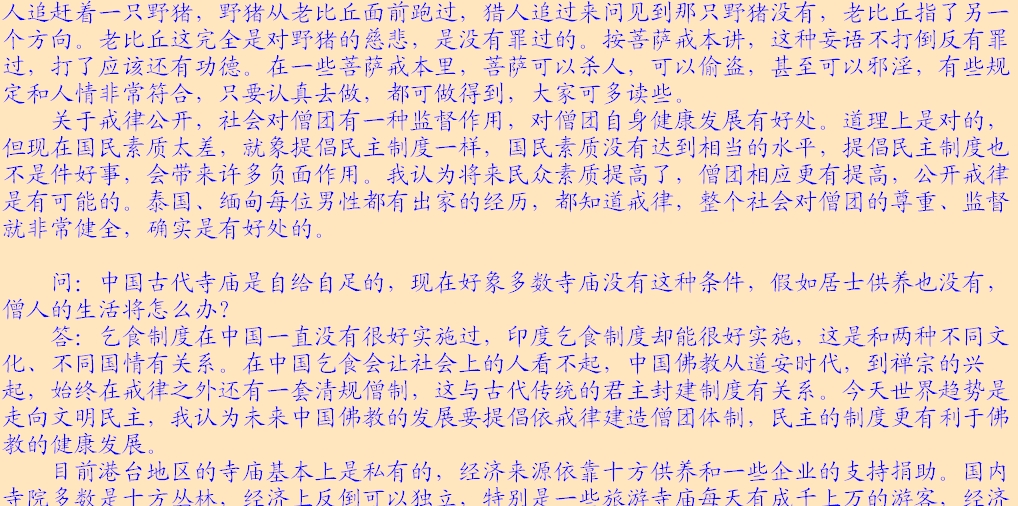 人追赶着一只野猪，野猪从老比丘面前跑过，猎人追过来问见到那只野猪没有，老比丘指了另一
个方向。老比丘这完全是对野猪的慈悲，是没有罪过的。按菩萨戒本讲，这种妄语不打倒反有罪
过，打了应该还有功德。在一些菩萨戒本里，菩萨可以杀人，可以偷盗，甚至可以邪淫，有些规
定和人情非常符合，只要认真去做，都可做得到，大家可多读些。
关于戒律公开，社会对僧团有一种监督作用，对僧团自身健康发展有好处。道理上是对的，
但现在国民素质太差，就象提倡民主制度一样，国民素质没有达到相当的水平，提倡民主制度也
不是件好事，会带来许多负面作用。我认为将来民众素质提高了，僧团相应更有提高，公开戒律
是有可能的。泰国、缅甸每位男性都有出家的经历，都知道戒律，整个社会对僧团的尊重、监督
就非常健全，确实是有好处的。
问：中国古代寺庙是自给自足的，现在好象多数寺庙没有这种条件，假如居士供养也没有，
僧人的生活将怎么办？
答：乞食制度在中国一直没有很好实施过，印度乞食制度却能很好实施，这是和两种不同文
化、不同国情有关系。在中国乞食会让社会上的人看不起，中国佛教从道安时代，到禅宗的兴
起，始终在戒律之外还有一套清规僧制，这与古代传统的君主封建制度有关系。今天世界趋势是
走向文明民主，我认为未来中国佛教的发展要提倡依戒律建造僧团体制，民主的制度更有利于佛
教的健康发展。
目前港台地区的寺庙基本上是私有的，经济来源依靠十方供养和一些企业的支持捐助。国内
寺院多数是十方丛林，经济上反倒可以独立，特别是一些旅游寺庙每天有成千上万的游客，经济